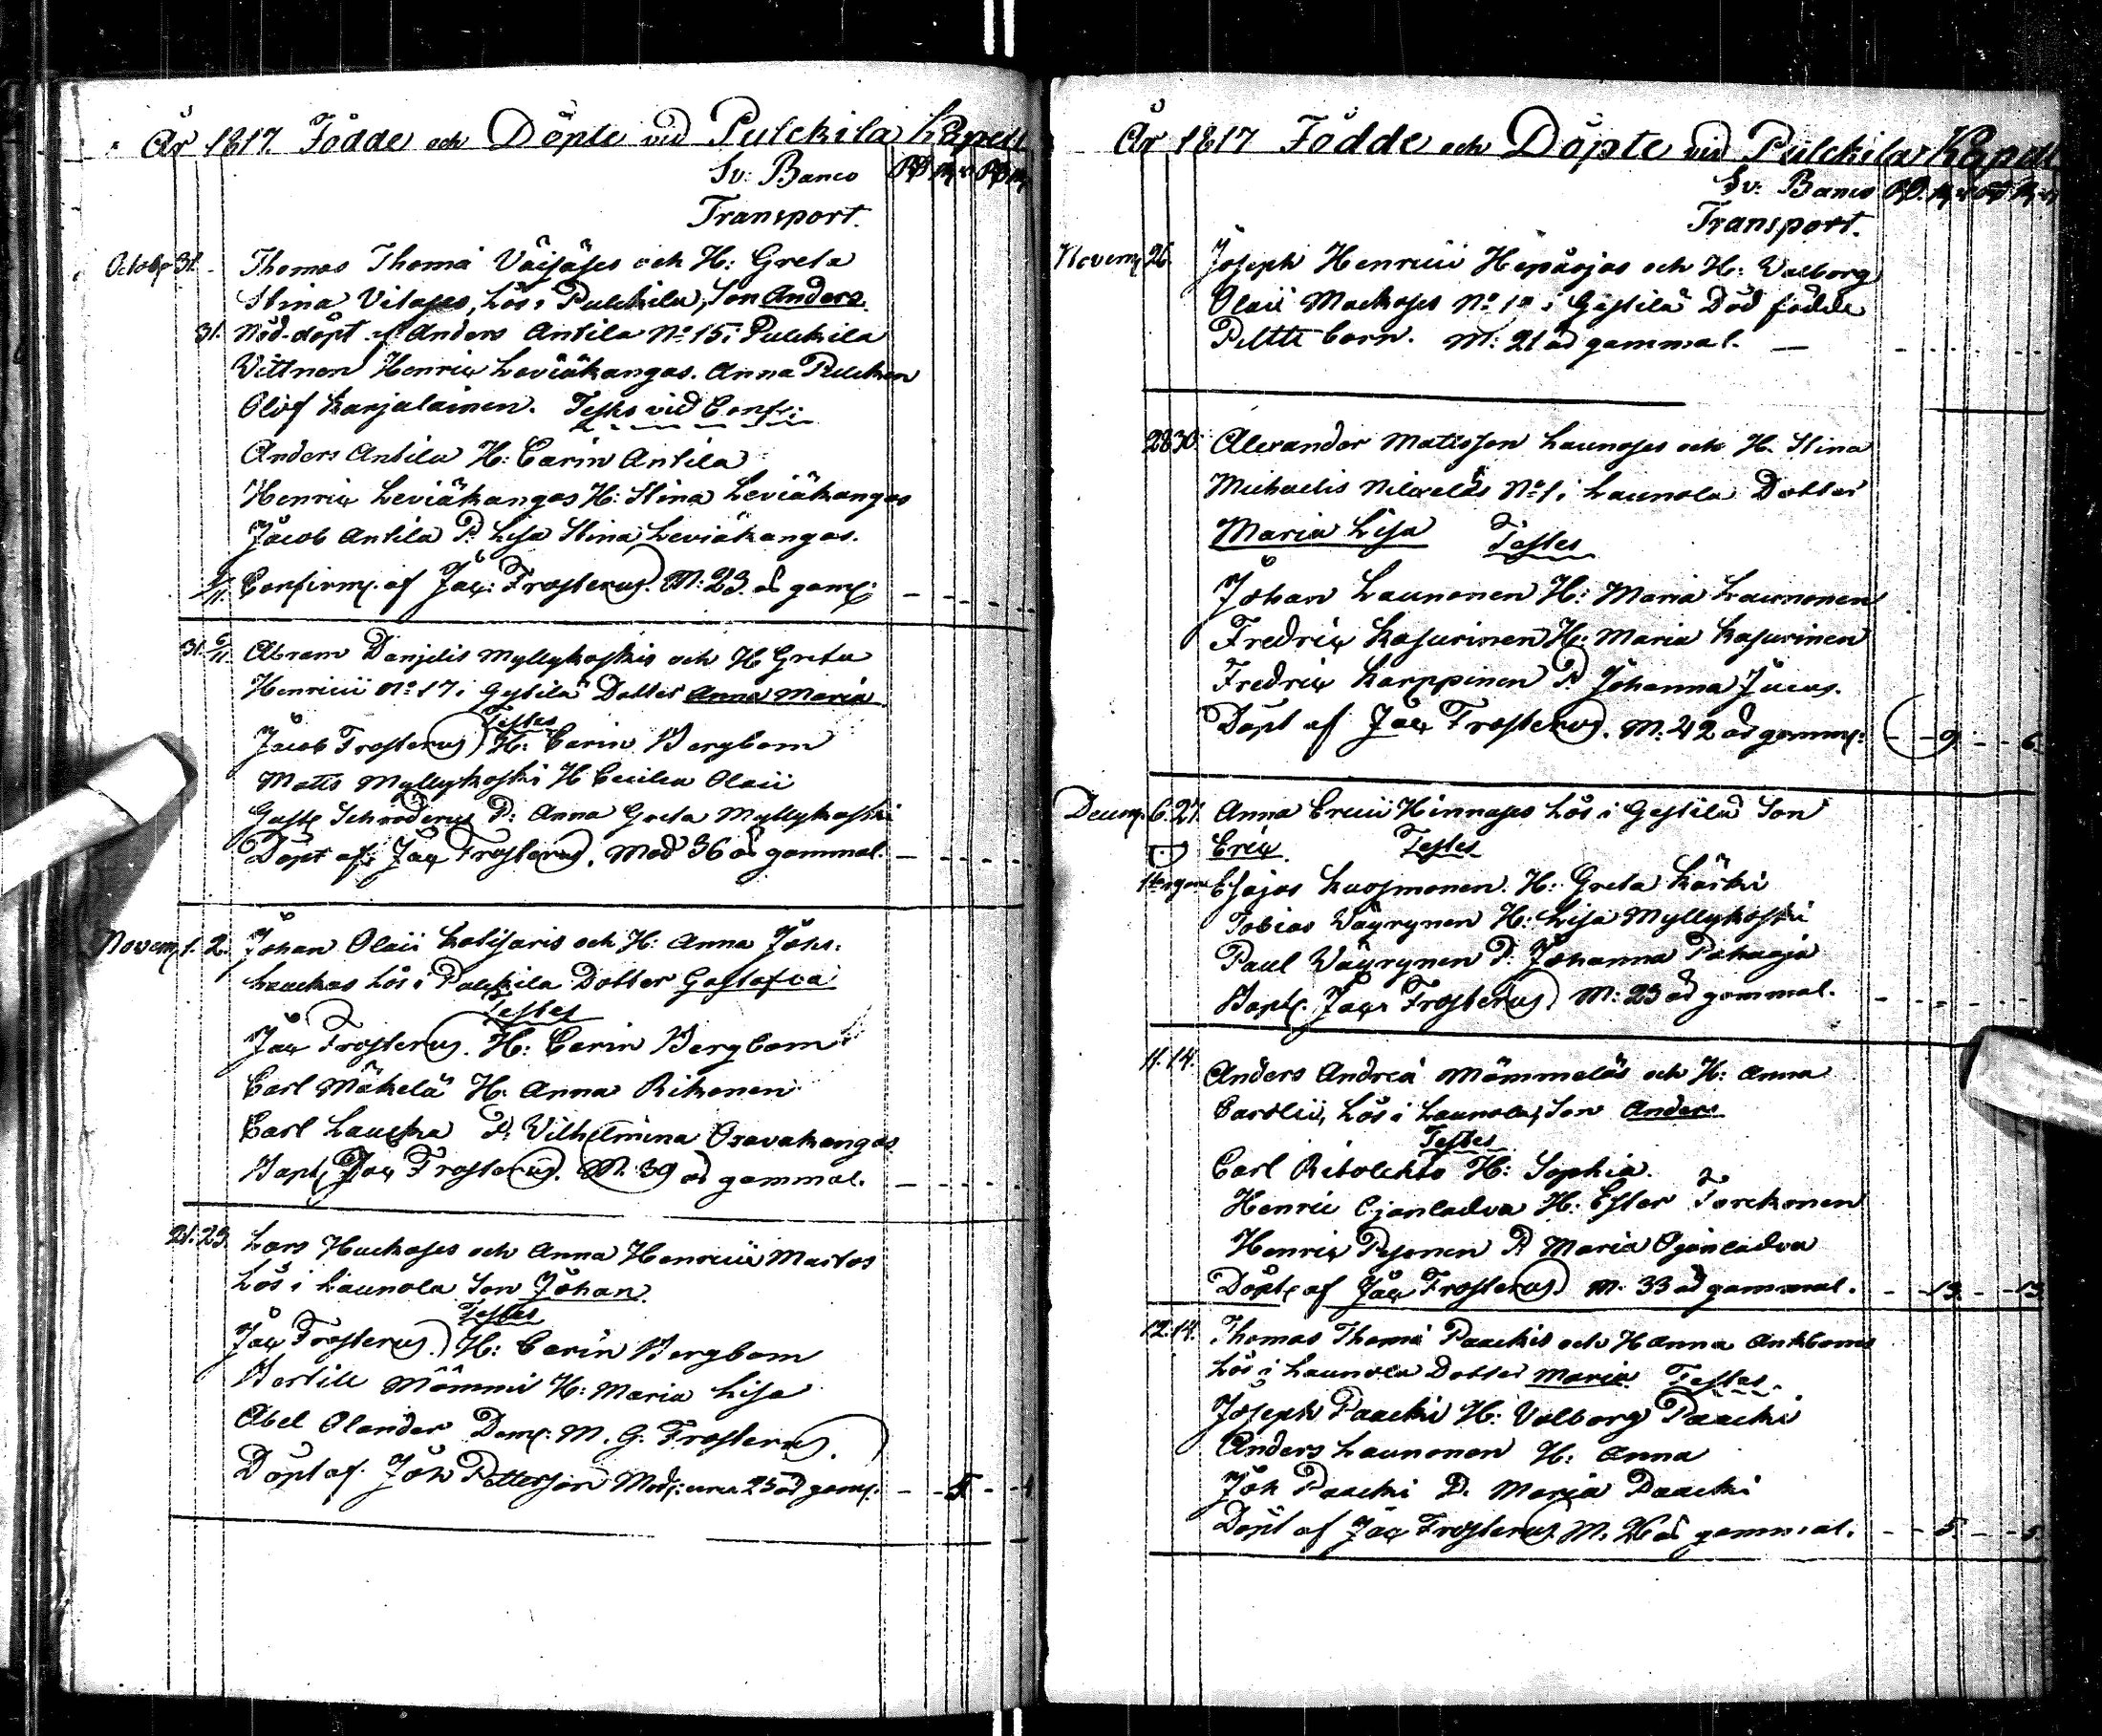 År 1817. Födde och Döpte vid Pulckila Kapell
Sv: Banco
Transport.
Octobr 31. Thomas Thomä Väisäses och H: Greta
Stina Vilases, Lös i Pulckila, Son Anders.
31. Nöd-döpt af Anders Antila No 15 i Pulckila
Vittnen Henric Leviäkangas. Anna Pulckinen
Olof Karjalainen. Testes vid Confir:
Anders Antila H: Carin Antila
Henric Leviäkangas H: Stina Leviäkangas
Jacob Antila P. Lisa Stina Leviäkangas.
Confirm. af Jac: Frosterus. M: 23. år gam:
31. 6/11. Abram Danjelis Myllykoskis och H Greta
Henricii No 17 i Gestilä Dotter Anna Maria
Testes
Jacob Frosterus H: Carin Bergbom
Matts Myllykoski H Cecilia Olaii
Gust. Schroderus P: Anna Greta Myllykoski
Döpt af Jac Frosterus. Mod 36 år gammal.
Novem. 1. 2. Johan Olaii Kolisaris och H: Anna Johs:
Lauckas Lös i Pulckila Dotter Gustafva
Testes
Jac Frosterus. H: Carin Bergbom
Carl Mäkelä H: Anna Rikonen
Carl Laucka P. Vilhelmina Osavakangas
Bapt. Jac Frosterus. M. 39 år gammal.
21. 23. Lars Huckases och Anna Henricii Martos
Lös i Launola Son Johan.
Testes
Jac Frosterus. H: Carin Bergbom
Bertill Mömmi H: Maria Lisa
Abel Olander Dem: M. G. Frosterus.
Döpt af Joh Pettersson Mod: 25 år gam:
År 1817 Födde och Döpte vid Pulckila Kapell
Sv: Banco
Transport.
Novem. 26. Joseph Henricii Hepäojas och H: Valborg
Olaii Mackoses No i Gestilä Död födde
barn. M: 21 år gammal.
28 30. Alexander Matisson Launoses och H. Stina
Michaelis Niloeläs No 1 i Launola Dotter
Maria Lisa Testes
Johan Launonen H: Maria Launonen
Fredric Kasurinen H: Maria Kasurinen
Fredric Karppinen P. Johanna Jucus.
Döpt af Jac Frosterus. M: 42 år gamm: 9 6.
Decem. 6. 27. Anna Ericii Hinnases Lös i Gestilä Son
Eric. Testes
Esajas Kuosmonen. H: Greta Kärki
Tobias Väyrynen H: Lisa Myllykoski
Paul Väyrynen P. Johanna Pahaoja
Bapt. Jac Frosterus. M: 23 år gammal.
11. 14. Anders Andreä Mömmeläs och H: Anna
Carolii, Lös i Launola, Son Anders
Testes
Carl Ritolehto H: Sophia.
Henric Ojanladva H: Ester Torckonen
Henric Pesonen P Maria Ojanladva
Döpt. af Jac Frosterus. M. 33 år gammal. 13. 13
12. 14. Thomas Thomä Paackis och H Anna
Lös i Launola Dotter Maria Testes.
Joseph Paacki H: Valborg Paacki
Anders Launonen H: Anna
Joh Paacki P. Maria Paacki
Döpt af Jac Frosterus. M. 26 år gammal. 5. 5.